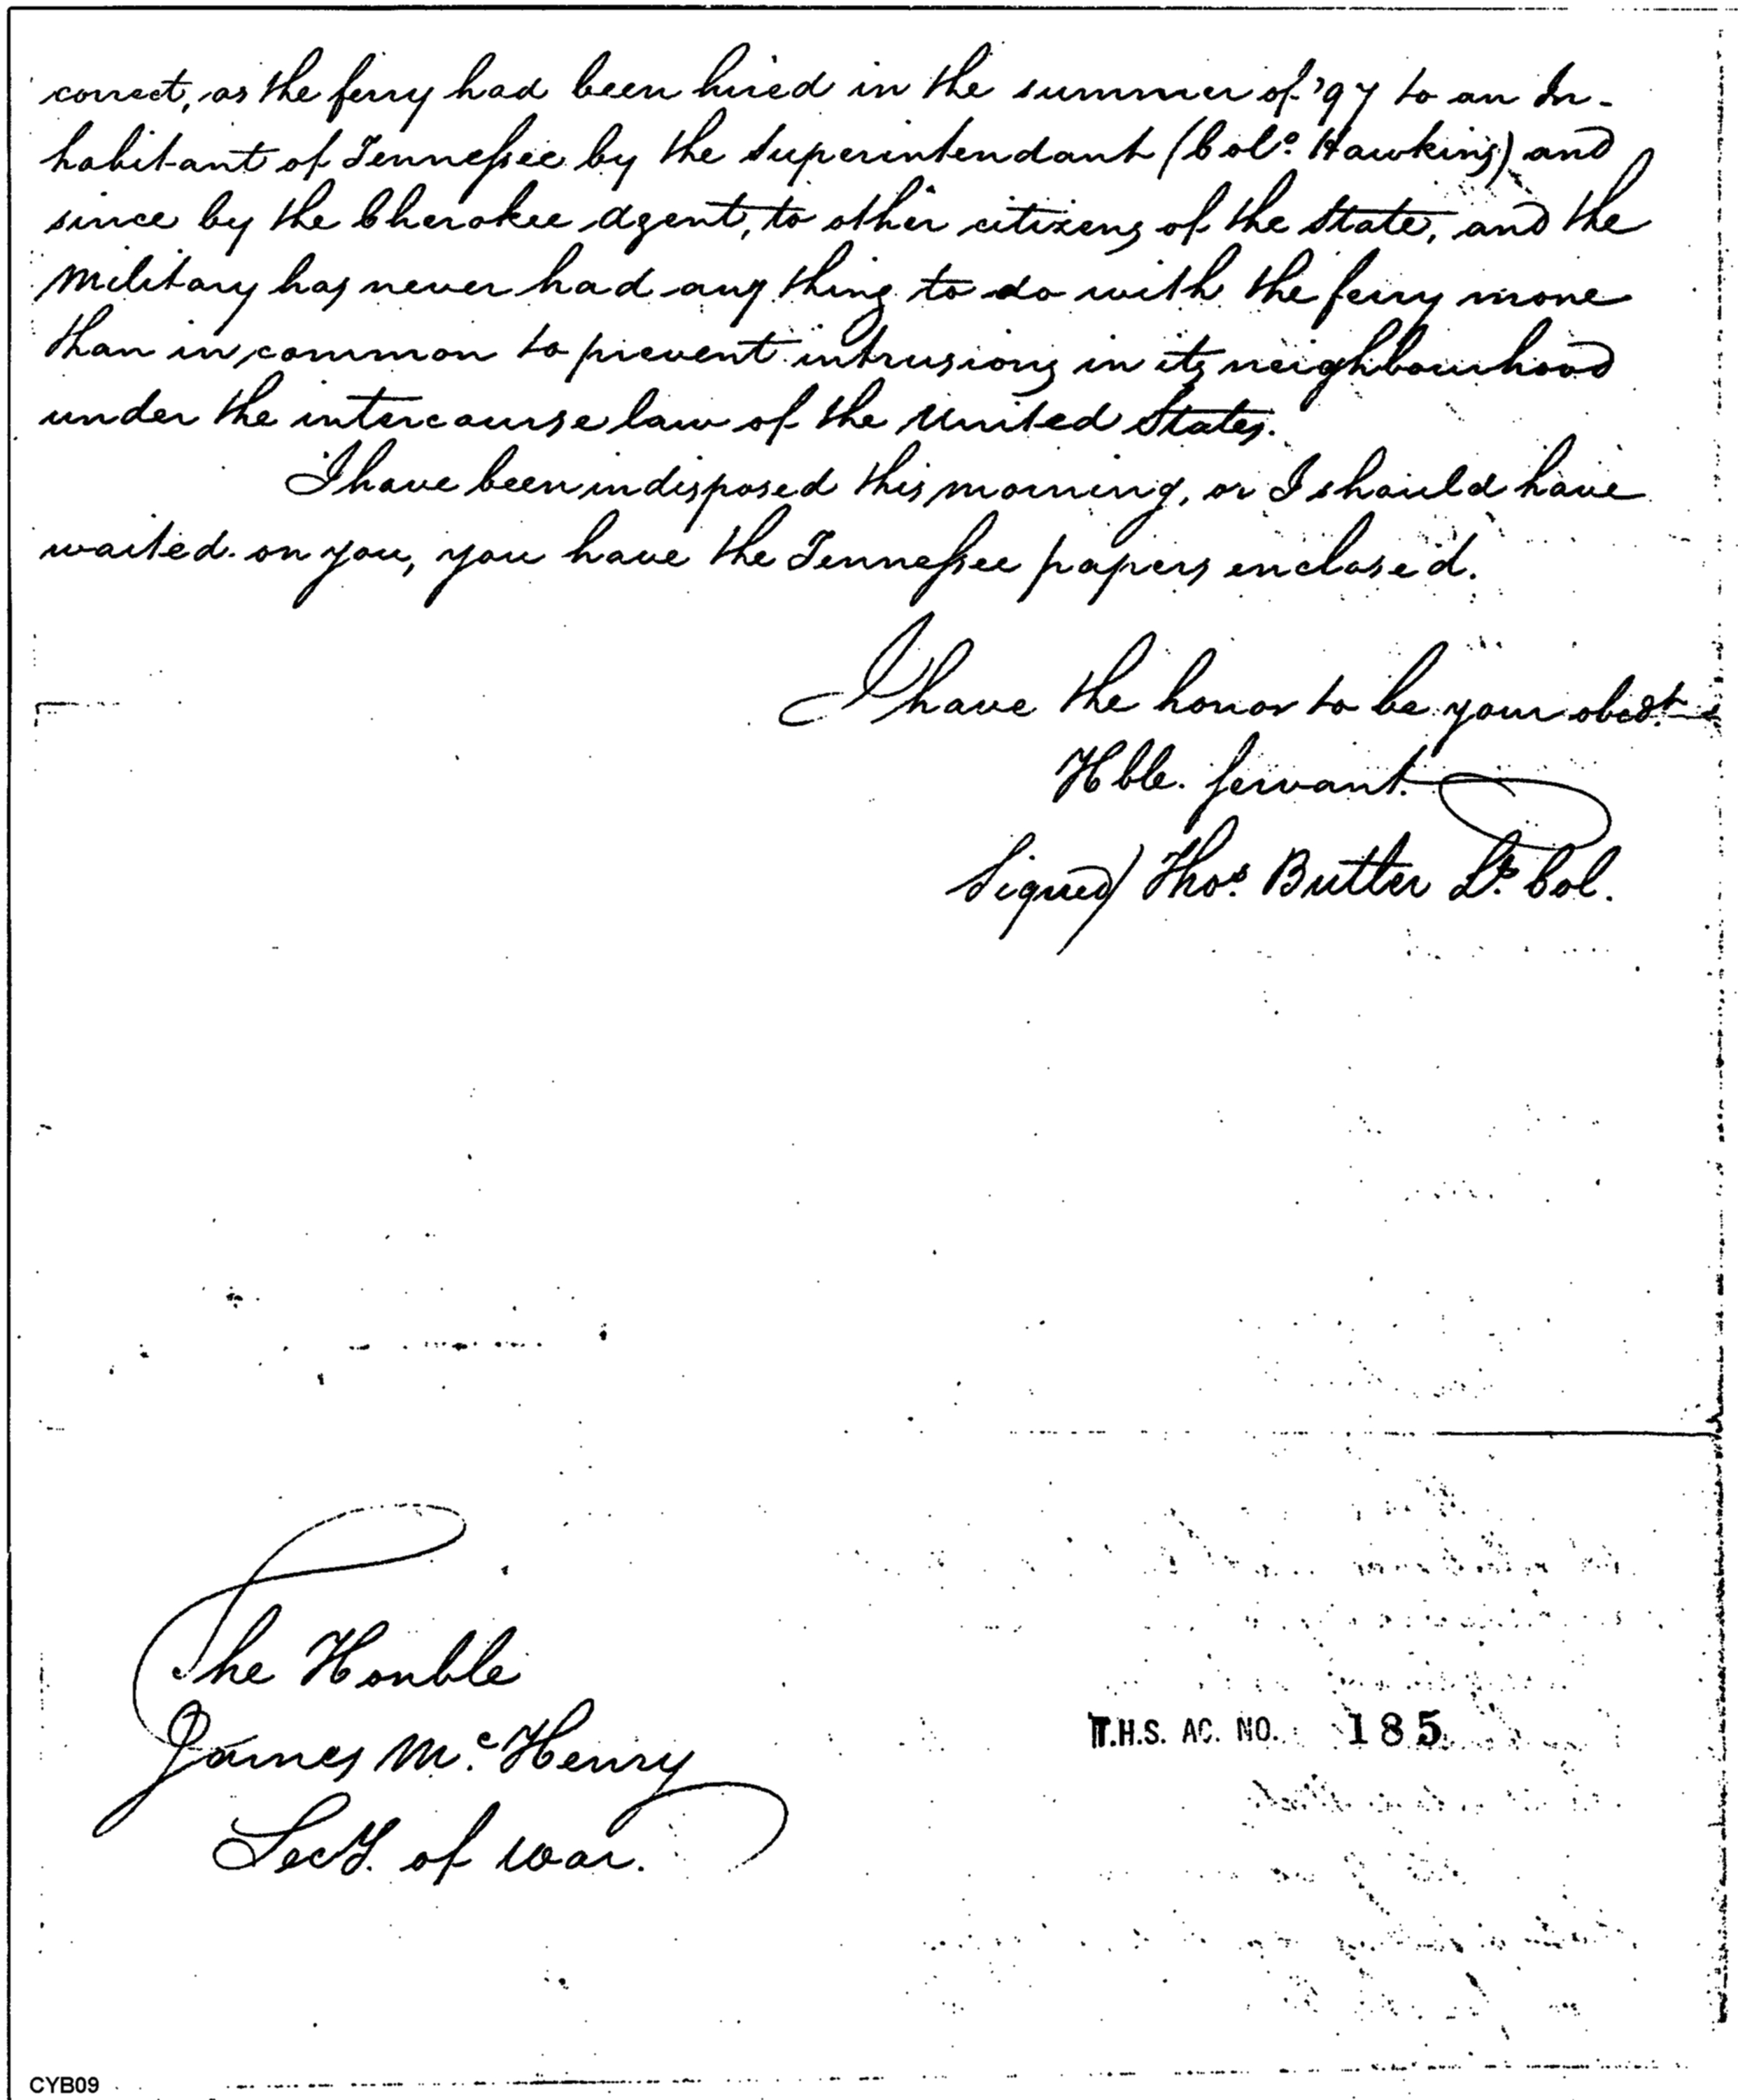 correct, as the ferry had been hired in the summer of '97 to an In-
habitant of Tennessee by the Superintendant (Colo. Hawkins) and
since by the Cherokee Agent, to other citizens of the State, and the
Military has never had any thing to do with the ferry more
than in common to prevent intrusions in its neighbourhood
under the intercourse law of the United States.
I have been indisposed this morning, or I should have
waited on you, you have the Tennessee papers enclosed.
I have the honor to be your obedt.
Hble. servant.
Signed) Thos. Butler Lt. Col.
The Honble
James Mc.Henry
Secy. of War.
T.H.S. AC. NO. 185
CYB09